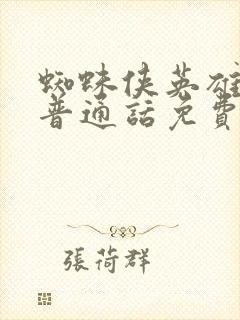 蜘蛛侠英雄
普通話免費
張荷群